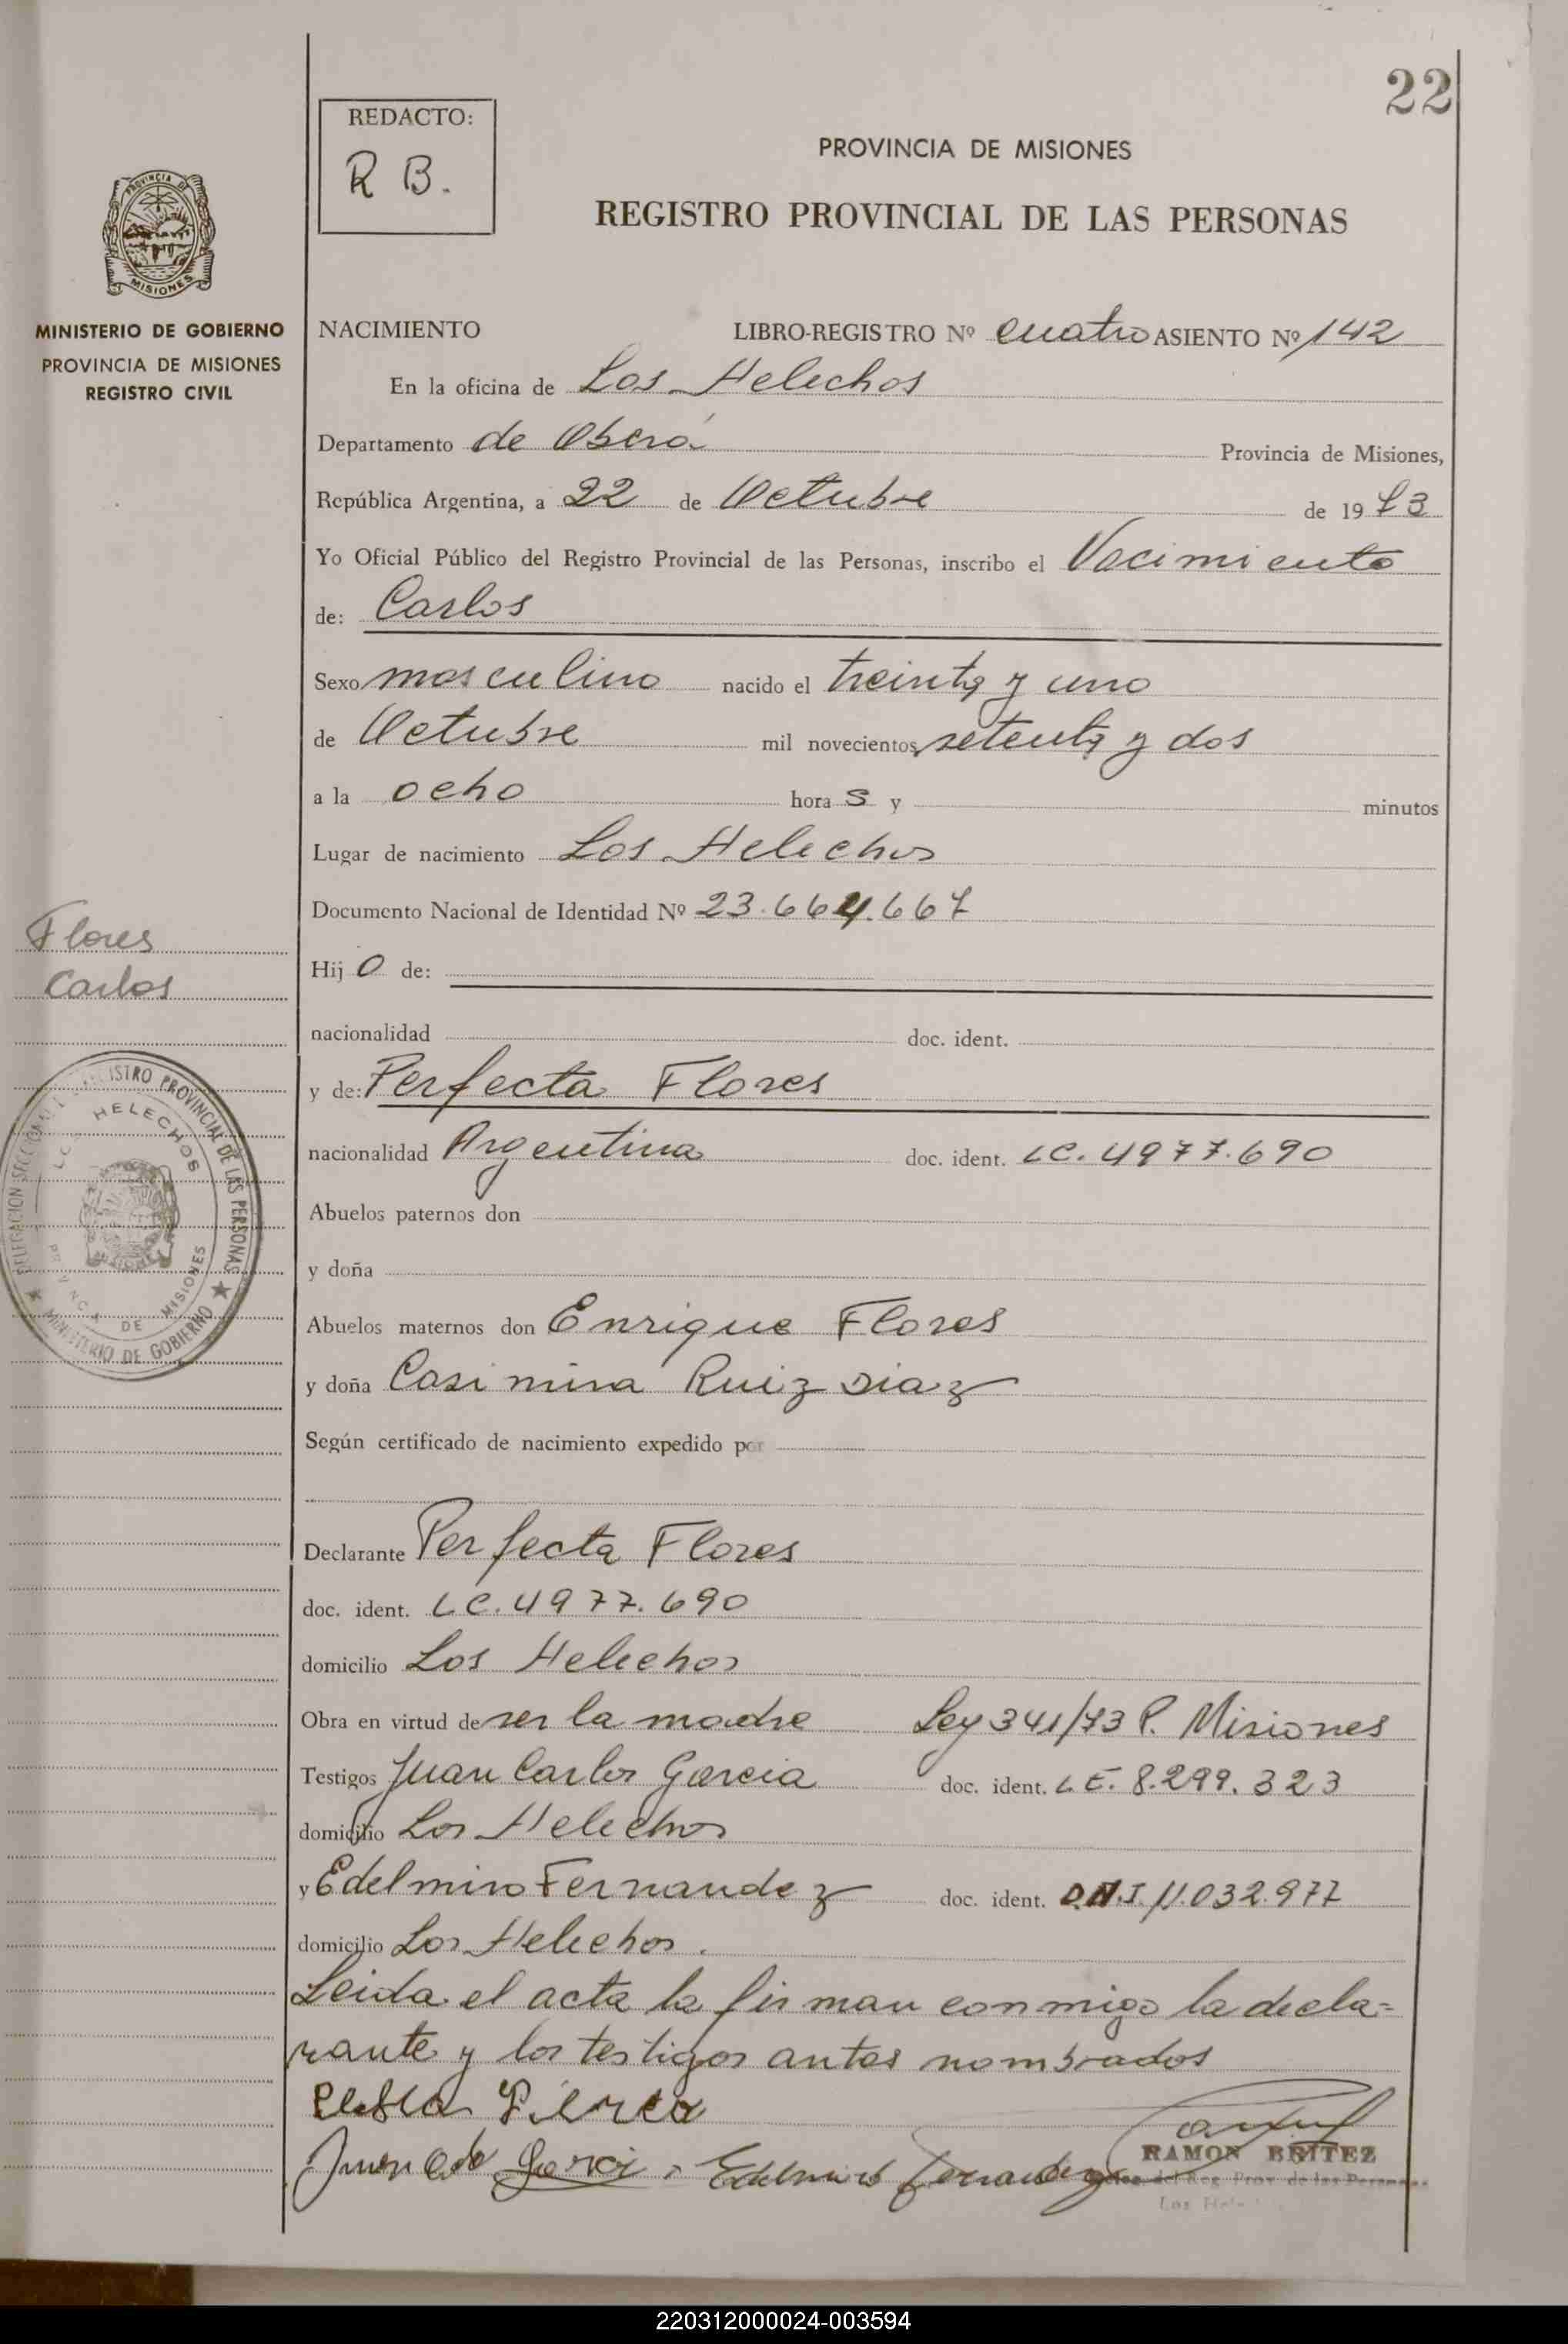 22
REDACTO:
R B.
PROVINCIA DE MISIONES
REGISTRO PROVINCIAL DE LAS PERSONAS
PROVINCIA DE
MISIONES
MINISTERIO DE GOBIERNO
PROVINCIA DE MISIONES
REGISTRO CIVIL
NACIMIENTO LIBRO-REGISTRO Nº cuatro ASIENTO Nº 142
En la oficina de Los Helechos
Departamento de Oberá Provincia de Misiones,
República Argentina, a 22 de Octubre de 1973
Yo Oficial Público del Registro Provincial de las Personas, inscribo el Nacimiento
de: Carlos
Sexo masculino nacido el treinta y uno
de Octubre mil novecientos setenta y dos
a la ocho hora s y minutos
Lugar de nacimiento Los Helechos
Documento Nacional de Identidad Nº 23.664.667
Flores
Carlos
Hij o de:
nacionalidad doc. ident.
y de: Perfecta Flores
nacionalidad Argentina doc. ident. LC. 4977.690
DELEGACION SECCIONAL REGISTRO PROVINCIAL DE LAS PERSONAS
LOS HELECHOS
PROVINCIA DE MISIONES
MINISTERIO DE GOBIERNO
Abuelos paternos don
y doña
Abuelos maternos don Enrique Flores
y doña Casimira Ruiz Diaz
Según certificado de nacimiento expedido por
Declarante Perfecta Flores
doc. ident. LC. 4977.690
domicilio Los Helechos
Obra en virtud de ser la madre Ley 341/73 P. Misiones
Testigos Juan Carlos Garcia doc. ident. L.E. 8.299.323
domicilio Los Helechos
y Edelmiro Fernandez doc. ident. D.N.I. 11.032.977
domicilio Los Helechos.
Leida el acta la firman conmigo la decla=
rante y los testigos antes nombrados
RAMON BRITEZ
del Reg. Prov. de las Personas
Los Hele
Edelmiro Fernandez
220312000024-003594